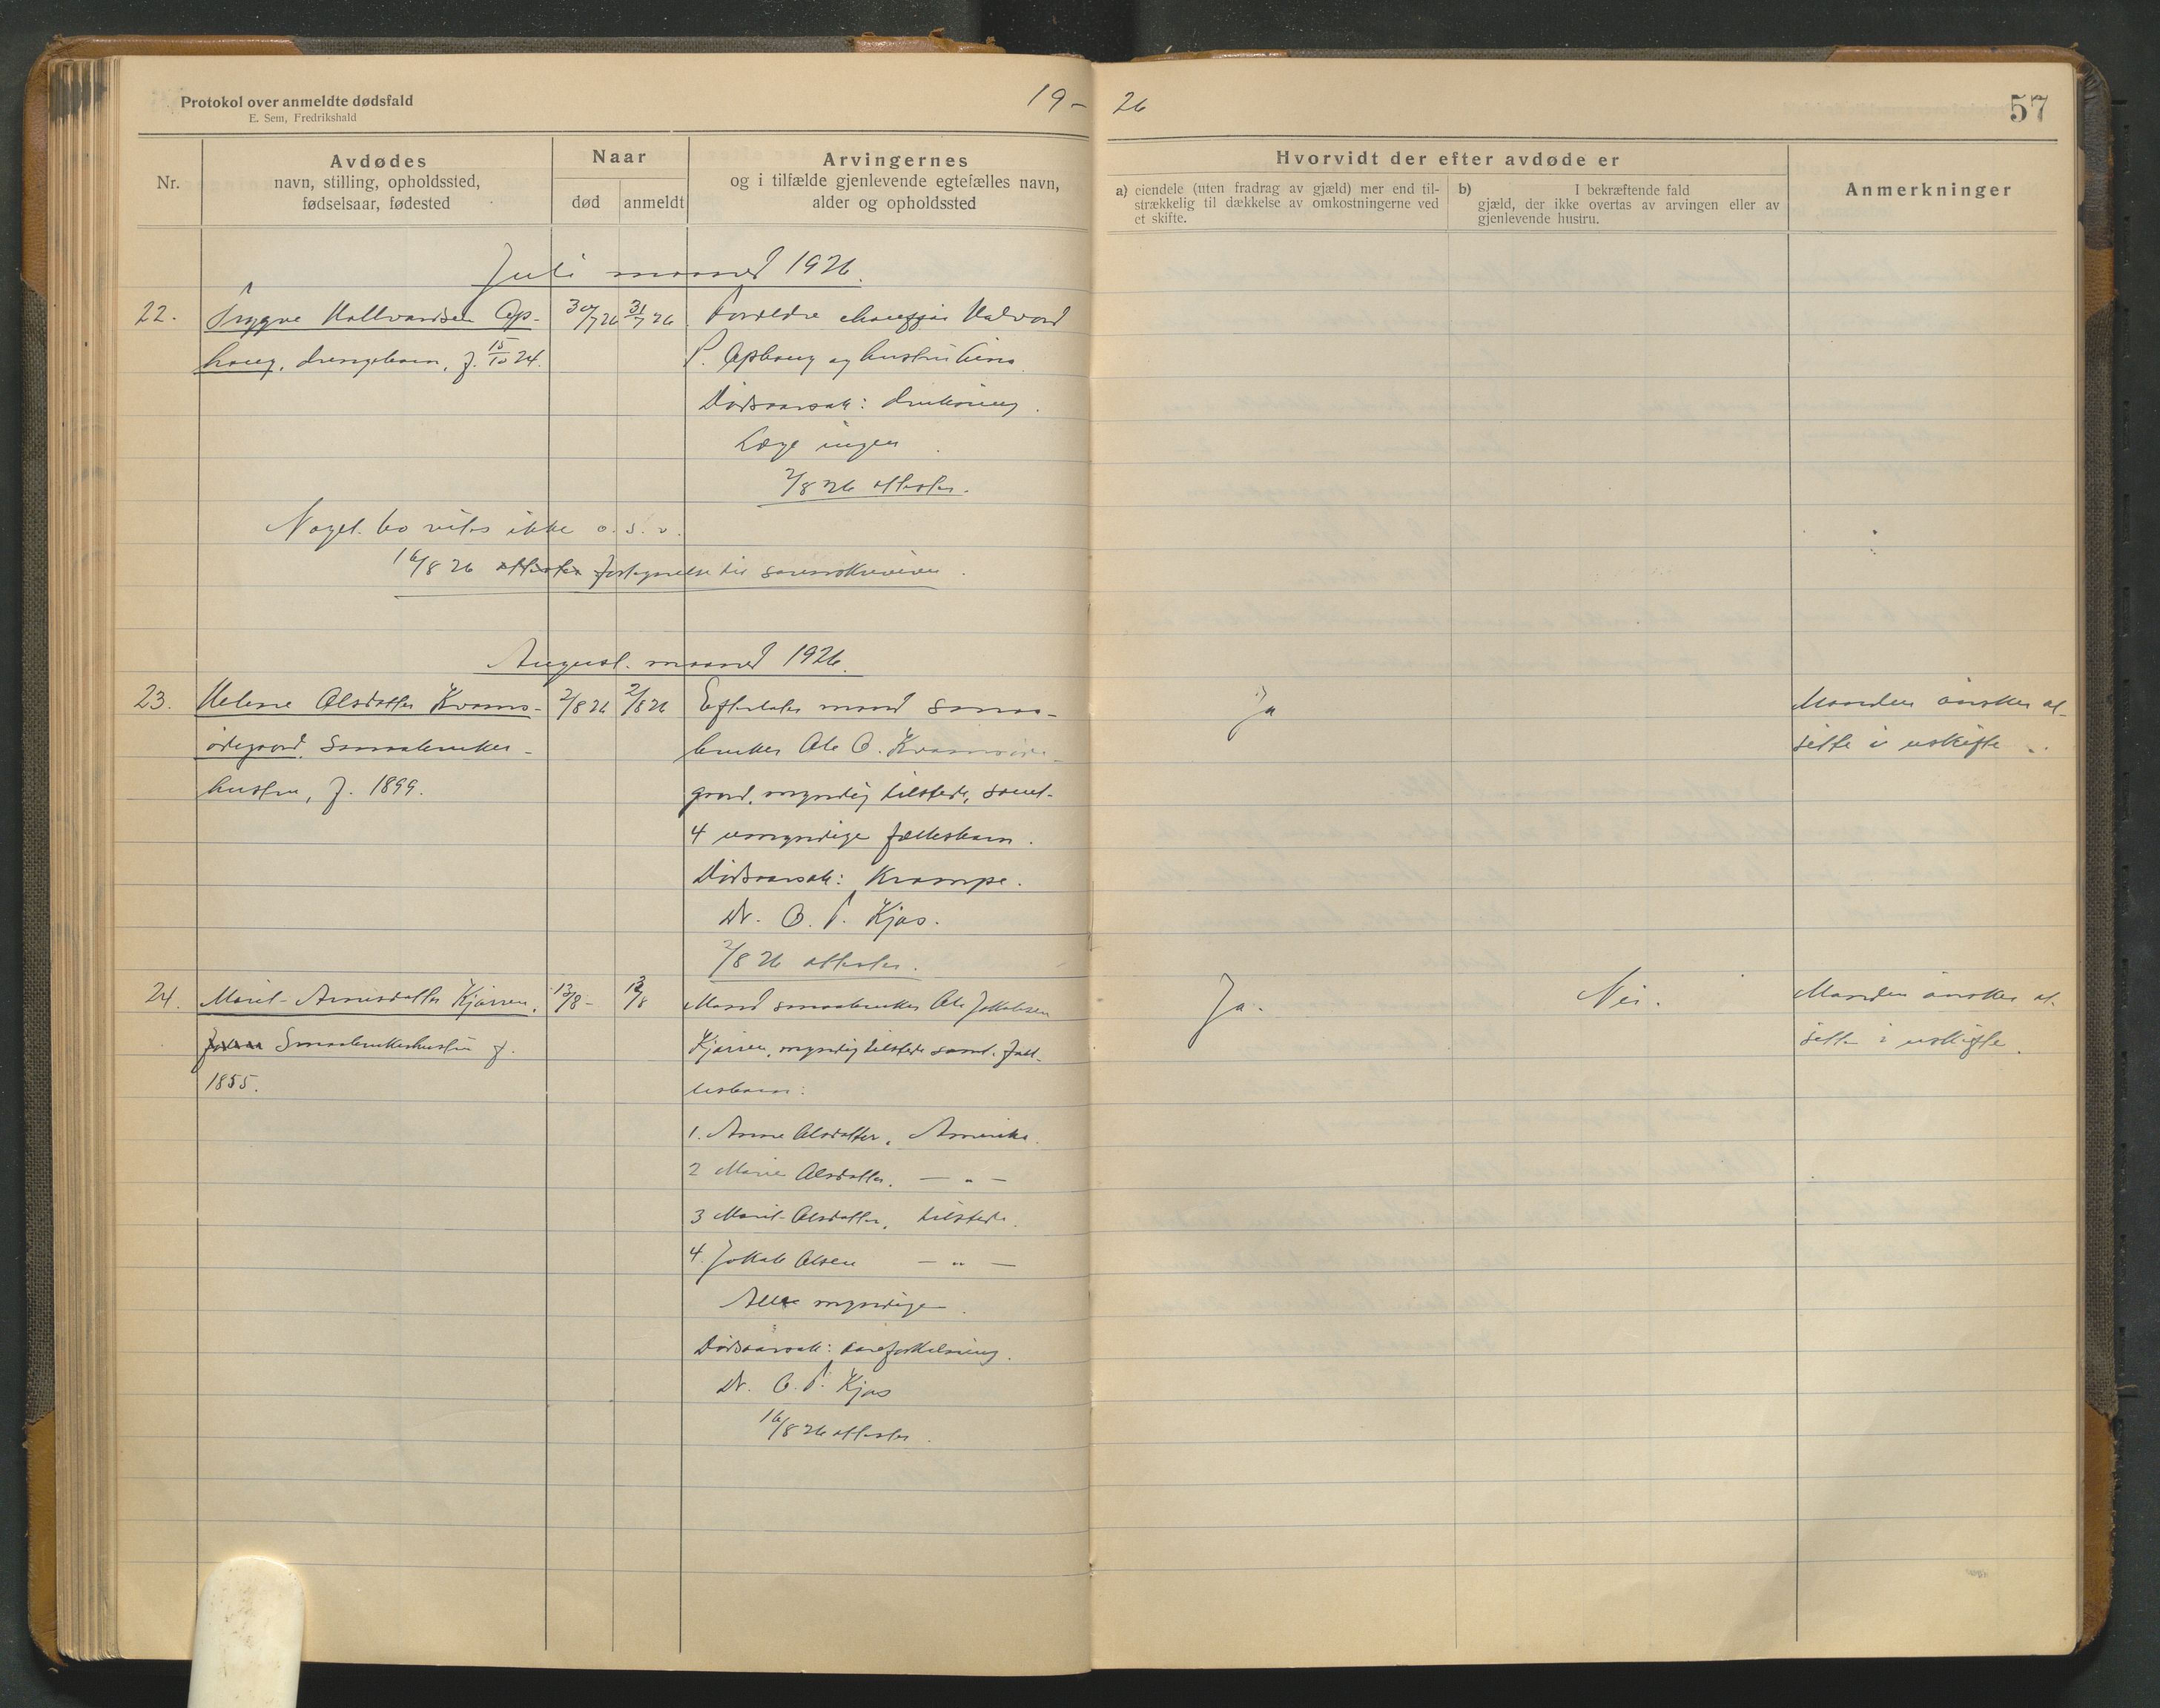 Protokol over anmeldte dødsfald
E. Sem, Fredrikshald
19 –
26
57
Nr.
Avdødes
navn, stilling, opholdssted,
fødselsaar, fødested
Naar
død
anmeldt
Arvingernes
og i tilfælde gjenlevende egtefælles navn,
alder og opholdssted
Hvorvidt der efter avdøde er
a) eiendele (uten fradrag av gjæld) mer end til-
strækkelig til dækkelse av omkostningerne ved
et skifte.
b) I bekræftende fald
gjæld, der ikke overtas av arvingen eller av
gjenlevende hustru.
Anmerkninger
Juli maaned 1926.
22.
Trygve Hallvardsen Ap-
haug, drengebarn, f. 15/10 24.
30/7 26
31/7 26
Forældre chauffør Halvord
P. Aphaug og hustru
Dødsaarsak: drukning.
Læge ingen.
2/8 26 attester.
Noget bo vites ikke o.s.v.
16/8 26 attester fortegnelse til sorenskriveren.
August maaned 1926.
23.
Helene Olsdatter Kvams-
ødegaard, smaabruker-
hustru, f. 1899.
2/8 26
2/8 26
Efterlater mand smaa-
bruker Ole O. Kvamsøde-
gaard, myndig tilstede, samt
4 umyndige fællesbarn.
Dødsaarsak: Krampe.
Dr. O. P. Kjos.
2/8 26 attester.
Ja
Manden ønsker at
sitte i uskifte.
24.
Marit Arnesdatter Kjørren,
Smaabrukerhustru f.
1855.
13/8 –
13/8
Mand smaabruker Ole Jakobsen
Kjørren, myndig tilstede samt fæl-
lesbarn:
1. Anne Olsdatter, Amerika.
2 Marie Olsdatter, — „ —
3 Marit Olsdatter, tilstede.
4. Jakob Olsen — „ —
Alle myndige.
Dødsaarsak: aareforkalkning.
Dr. O. P. Kjos
16/8 26 attester.
Ja.
Nei.
Manden ønsker at
sitte i uskifte.